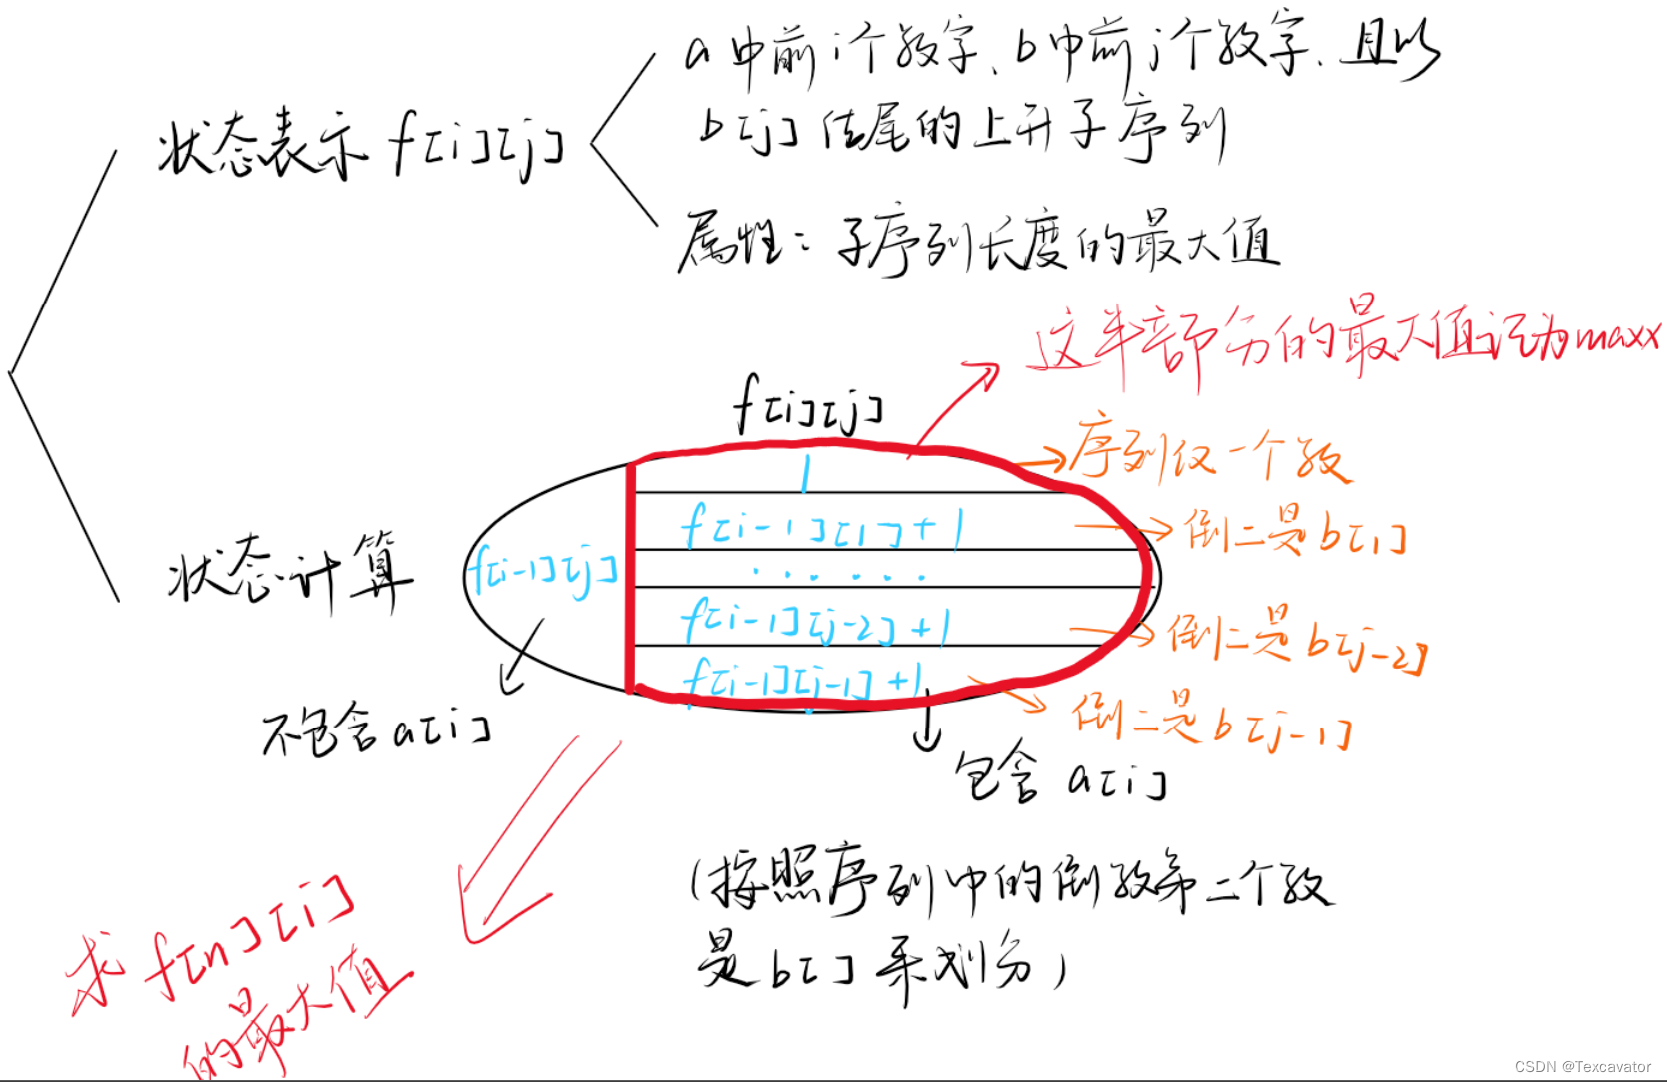 a中前i个数字、b中前j个数字、且以
b[j]结尾的上升子序列
状态表示 f[i][j]
属性：子序列长度的最大值
这半部分的最大值记为maxx
f[i][j]
1
序列仅一个数
f[i-1][1]+1
倒二是b[1]
......
状态计算
f[i-1][j]
f[i-1][j-2]+1
倒二是b[j-2]
f[i-1][j-1]+1
倒二是b[j-1]
不包含a[i]
包含 a[i]
(按照序列中的倒数第二个数
是b[]来划分)
求 f[n][i]
的最大值
CSDN @Texcavator